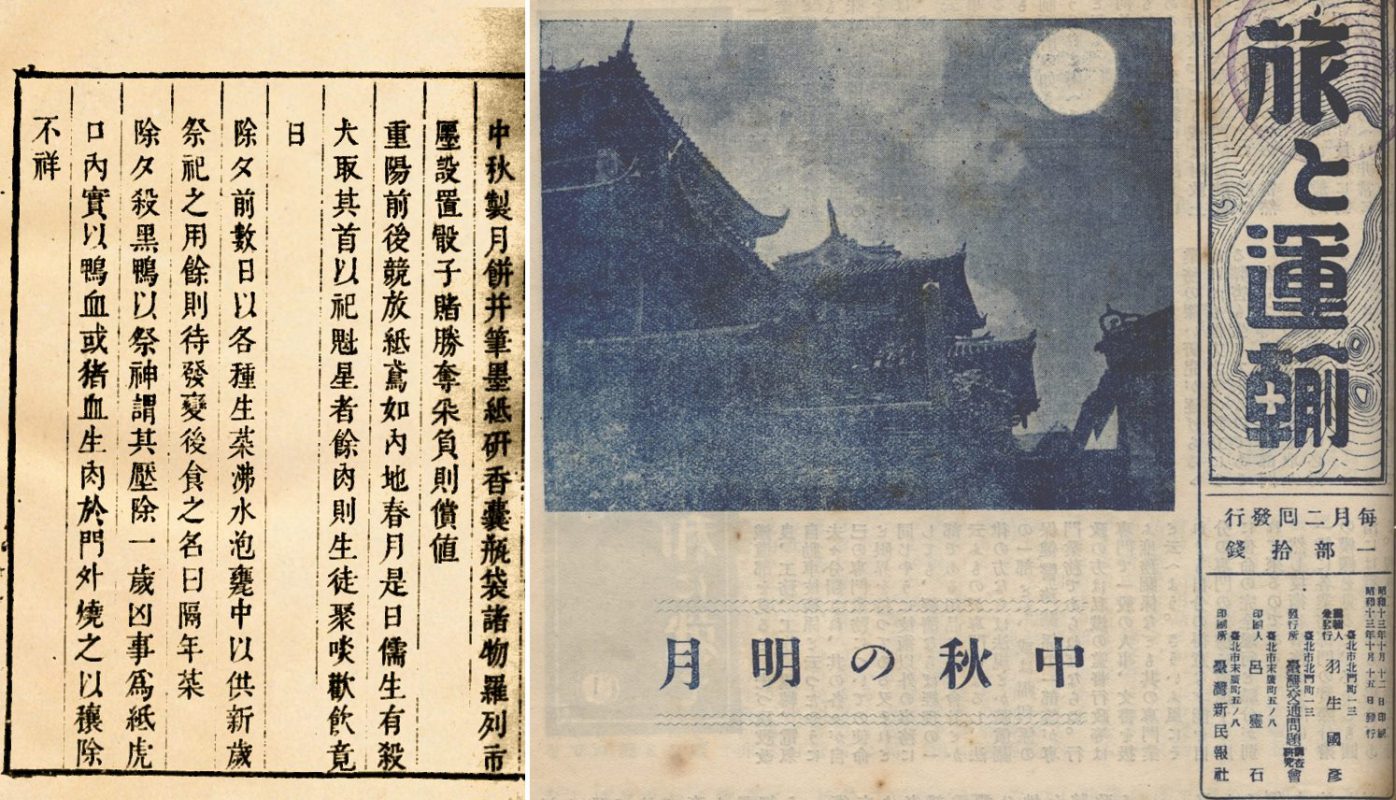 中秋製月餅并筆墨紙硏香囊瓶袋諸物羅列市
廛設置骰子賭勝奪朵負則償値
重陽前後競放紙鳶如內地春月是日儒生有殺
犬取其首以祀魁星者餘肉則生徒聚啖歡飲竟
日
除夕前數日以各種生菜沸水泡甕中以供新歲
祭祀之用餘則待發變後食之名曰隔年菜
除夕殺黑鴨以祭神謂其壓除一歲凶事爲紙虎
口內實以鴨血或猪血生肉於門外燒之以禳除
不祥
旅と運輸
每月二回發行
一部拾錢
昭和十三年十月十二日印刷
昭和十三年十月十五日發行
臺北市北門町一三
編輯人兼發行 羽生國彥
臺北市北門町一三
發行所 臺灣交通問題調査硏究會
臺北市末廣町五ノ八
印刷人 呂靈石
臺北市末廣町五ノ八
印刷所 臺灣新民報社
中秋の明月